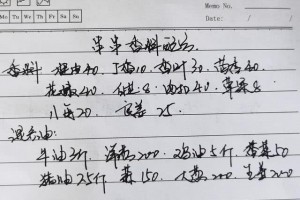 Mo Tu We Th Fr Sa Su
Memo No.
Date: / /
串串香料配方
香料 桂皮40. 丁香10. 香叶30. 茴香40
花椒40. 草果8
小茴20. 良姜25.
混合油:
牛油3斤 洋葱200 鸡油5斤 香菜50
猪油2.5斤 蒜150. 大葱200 生姜200